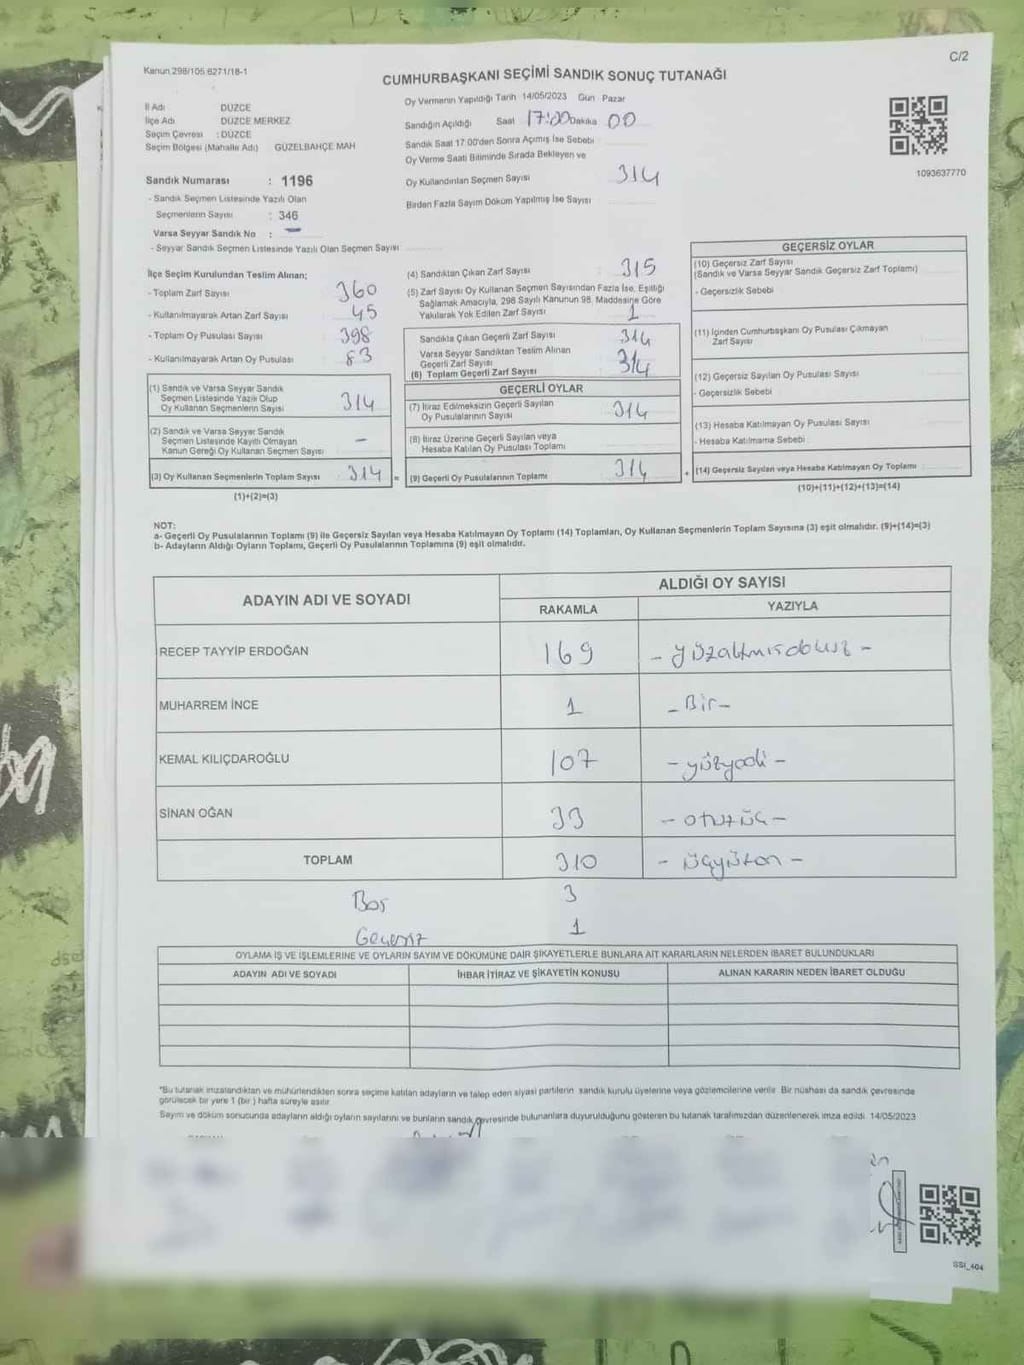 C/2
Kanun 298/105 6271/18-1
CUMHURBAŞKANI SEÇİMİ SANDIK SONUÇ TUTANAĞI
İl Adı DÜZCE
İlçe Adı DÜZCE MERKEZ
Seçim Çevresi : DÜZCE
Seçim Bölgesi (Mahalle Adı) GÜZELBAHÇE MAH
Oy Vermenin Yapıldığı Tarih 14/05/2023 Gün Pazar
Sandığın Açıldığı Saat 17:00 Dakika 00
Sandık Saat 17.00'den Sonra Açımış İse Sebebi
Oy Verme Saati Bitiminde Sırada Bekleyen ve
Oy Kullandırılan Seçmen Sayısı 314
Birden Fazla Sayım Döküm Yapılmış İse Sayısı
1093637770
Sandık Numarası : 1196
- Sandık Seçmen Listesinde Yazılı Olan
Seçmenlerin Sayısı : 346
Varsa Seyyar Sandık No : -
- Seyyar Sandık Seçmen Listesinde Yazılı Olan Seçmen Sayısı
İlçe Seçim Kurulundan Teslim Alınan;
- Toplam Zarf Sayısı 360
- Kullanılmayarak Artan Zarf Sayısı 45
- Toplam Oy Pusulası Sayısı 398
- Kullanılmayarak Artan Oy Pusulası 83
(1) Sandık ve Varsa Seyyar Sandık
Seçmen Listesinde Yazılı Olup
Oy Kullanan Seçmenlerin Sayısı 314
(2) Sandık ve Varsa Seyyar Sandık
Seçmen Listesinde Kayıtlı Olmayan
Kanun Gereği Oy Kullanan Seçmen Sayısı -
(3) Oy Kullanan Seçmenlerin Toplam Sayısı 314 =
(1)+(2)=(3)
(4) Sandıktan Çıkan Zarf Sayısı 315
(5) Zarf Sayısı Oy Kullanan Seçmen Sayısından Fazla İse, Eşitliği
Sağlamak Amacıyla, 298 Sayılı Kanunun 98. Maddesine Göre
Yakılarak Yok Edilen Zarf Sayısı 1
Sandıkta Çıkan Geçerli Zarf Sayısı 314
Varsa Seyyar Sandıktan Teslim Alınan
Geçerli Zarf Sayısı
(6) Toplam Geçerli Zarf Sayısı 314
GEÇERLİ OYLAR
(7) İtiraz Edilmeksizin Geçerli Sayılan
Oy Pusulalarının Sayısı 314
(8) İtiraz Üzerine Geçerli Sayılan veya
Hesaba Katılan Oy Pusulası Toplamı
(9) Geçerli Oy Pusulalarının Toplamı 314 +
GEÇERSİZ OYLAR
(10) Geçersiz Zarf Sayısı
(Sandık ve Varsa Seyyar Sandık Geçersiz Zarf Toplamı)
- Geçersizlik Sebebi
(11) İçinden Cumhurbaşkanı Oy Pusulası Çıkmayan
Zarf Sayısı
(12) Geçersiz Sayılan Oy Pusulası Sayısı
- Geçersizlik Sebebi
(13) Hesaba Katılmayan Oy Pusulası Sayısı
- Hesaba Katılmama Sebebi
(14) Geçersiz Sayılan veya Hesaba Katılmayan Oy Toplamı
(10)+(11)+(12)+(13)=(14)
NOT:
a- Geçerli Oy Pusulalarının Toplamı (9) ile Geçersiz Sayılan veya Hesaba Katılmayan Oy Toplamı (14) Toplamları, Oy Kullanan Seçmenlerin Toplam Sayısına (3) eşit olmalıdır. (9)+(14)=(3)
b- Adayların Aldığı Oyların Toplamı, Geçerli Oy Pusulalarının Toplamına (9) eşit olmalıdır.
ADAYIN ADI VE SOYADI ALDIĞI OY SAYISI
RAKAMLA YAZIYLA
RECEP TAYYİP ERDOĞAN 169 - yüzaltmışdokuz -
MUHARREM İNCE 1 - Bir -
KEMAL KILIÇDAROĞLU 107 - yüzyedi -
SİNAN OĞAN 33 - otuzüç -
TOPLAM 310 - üçyüzon -
Boş 3
Geçersiz 1
OYLAMA İŞ VE İŞLEMLERİNE VE OYLARIN SAYIM VE DÖKÜMÜNE DAİR ŞİKAYETLERLE BUNLARA AİT KARARLARIN NELERDEN İBARET BULUNDUKLARI
ADAYIN ADI VE SOYADI İHBAR İTİRAZ VE ŞİKAYETİN KONUSU ALINAN KARARIN NEDEN İBARET OLDUĞU
*Bu tutanak imzalandıktan ve mühürlendikten sonra seçime katılan adayların ve talep eden siyasi partilerin sandık kurulu üyelerine veya gözlemcilerine verilir. Bir nüshası da sandık çevresinde
görülecek bir yere 1 (bir) hafta süreyle asılır.
Sayım ve döküm sonucunda adayların aldığı oyların sayılarını ve bunların sandık çevresinde bulunanlara duyurulduğunu gösteren bu tutanak tarafımızdan düzenlenerek imza edildi. 14/05/2023
SSI_404